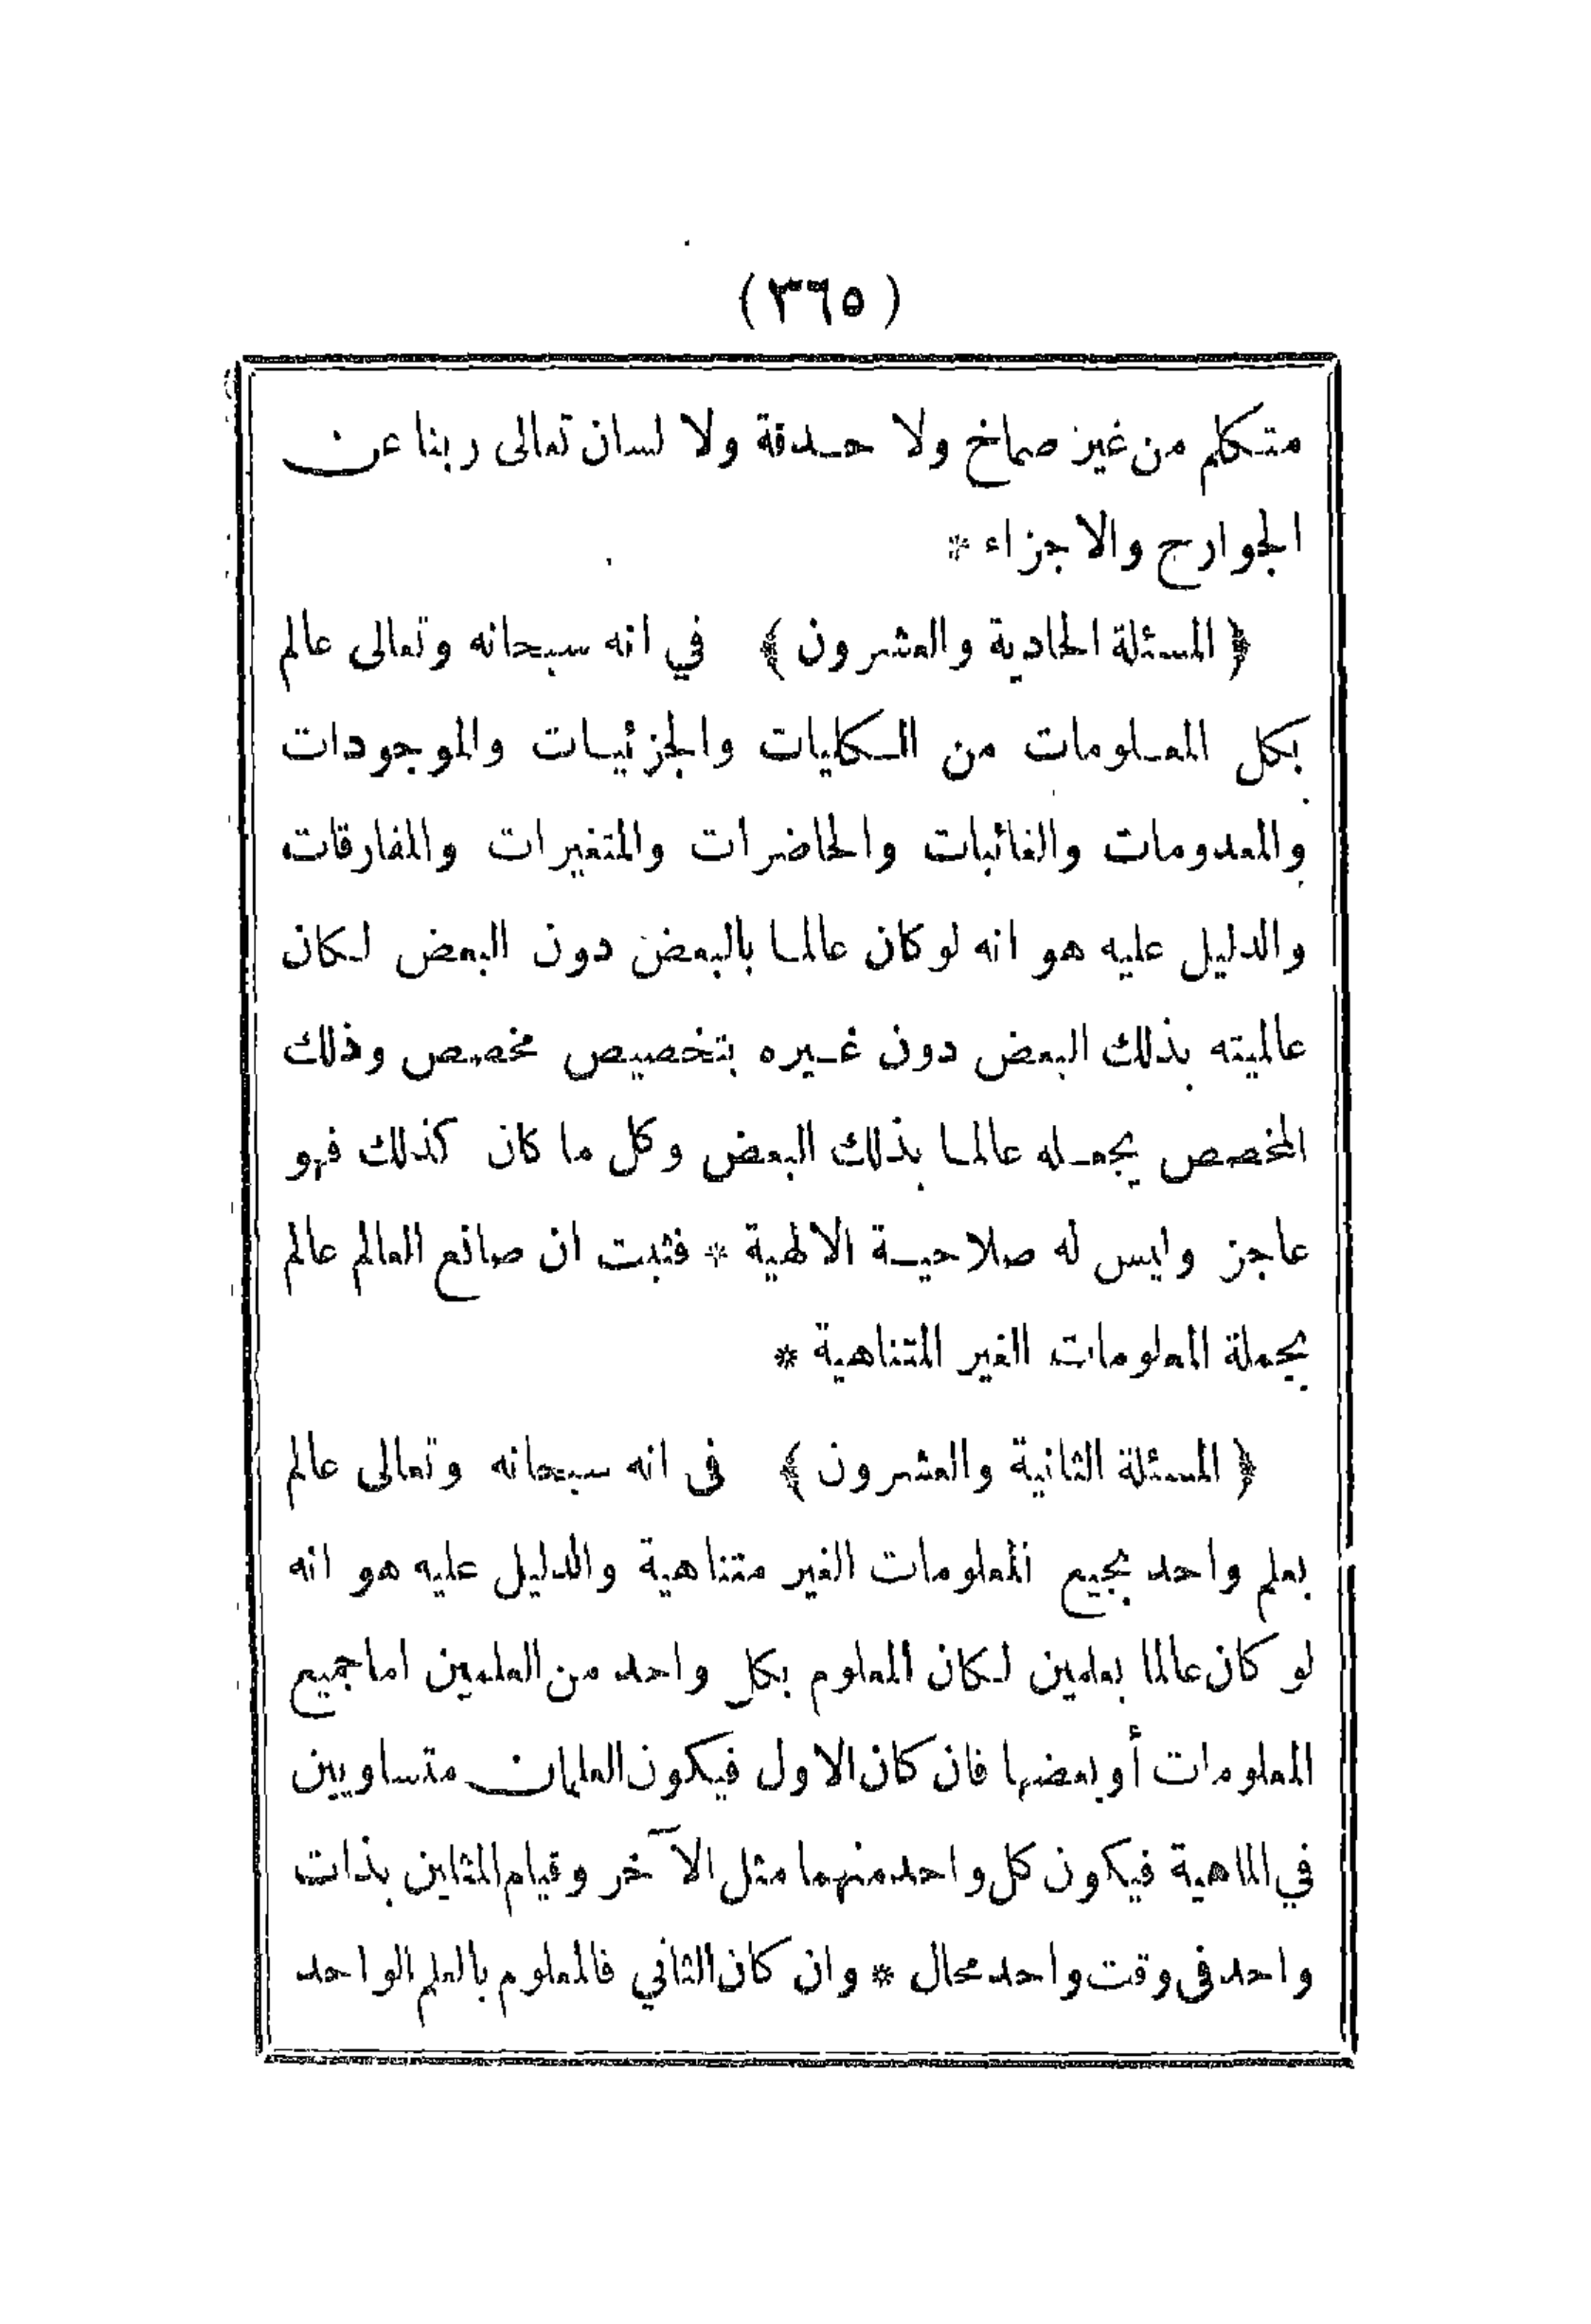 (٣٦٥)
متكلم من غير صماخ ولا حدقة ولا لسان تعالى ربنا عن
الجوارح والاجزاء *
﴿ المسئلة الحادية والعشرون ﴾ في انه سبحانه وتعالى عالم
بكل المعلومات من الكليات والجزئيات والموجودات
والمعدومات والغائبات والحاضرات والمتغيرات والمفارقات
والدليل عليه هو انه لو كان عالما بالبعض دون البعض لكان
عالميته بذلك البعض دون غيره بتخصيص مخصص وذلك
المخصص يجعله عالما بذلك البعض وكل ما كان كذلك فهو
عاجز وليس له صلاحية الالهية * فثبت ان صانع العالم عالم
بجملة المعلومات الغير المتناهية *
﴿ المسئلة الثانية والعشرون ﴾ فى انه سبحانه وتعالى عالم
بعلم واحد بجميع المعلومات الغير متناهية والدليل عليه هو انه
لو كان عالما بعلمين لكان المعلوم بكل واحد من العلمين اما جميع
المعلومات أو بعضها فان كان الاول فيكون العلمان متساويين
في الماهية فيكون كل واحد منهما مثل الآخر وقيام المثلين بذات
واحد فى وقت واحد محال * وان كان الثاني فالمعلوم بالعلم الواحد